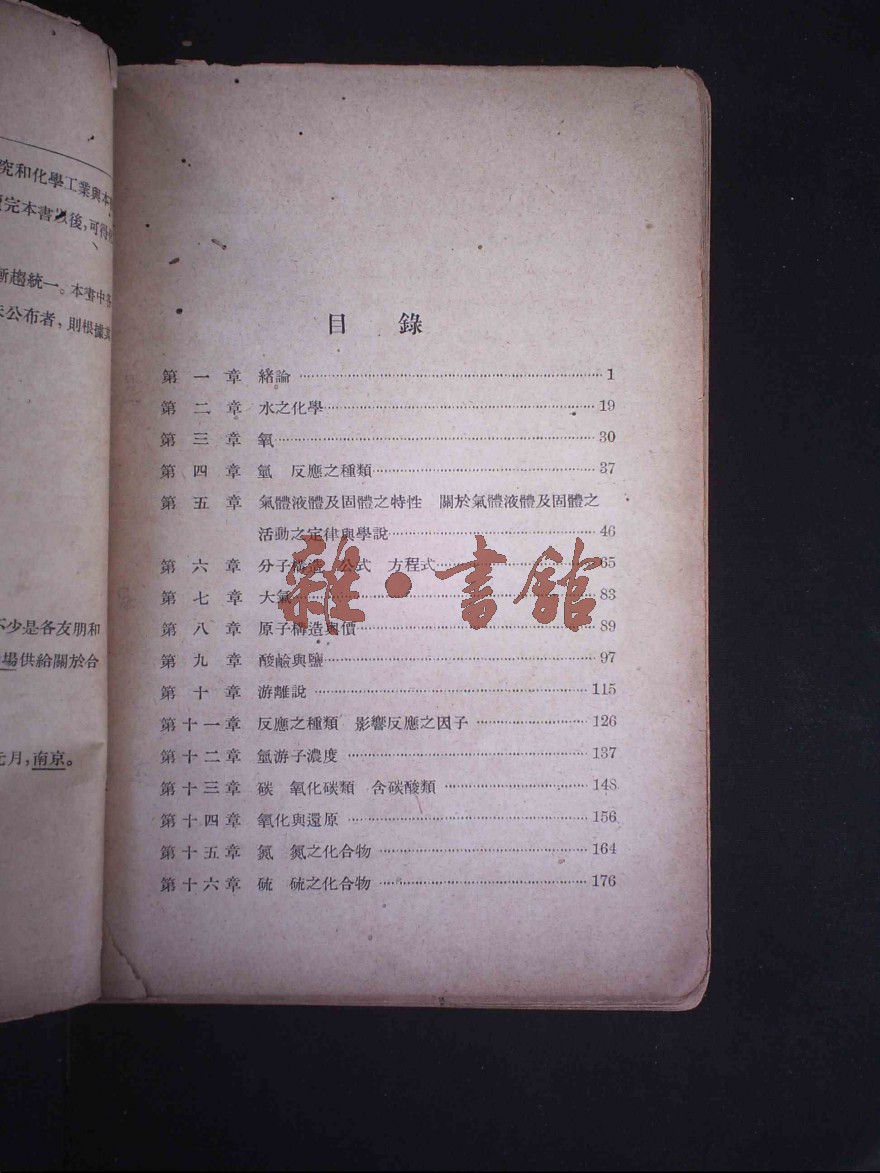 究和化學工業與本
完本書以後,可得
漸趨統一。本書中各
未公布者,則根據其
不少是各友朋和
場供給關於合
元月,南京。
目 錄
第一章 緒論 1
第二章 水之化學 19
第三章 氧 30
第四章 氫 反應之種類 37
第五章 氣體液體及固體之特性 關於氣體液體及固體之
活動之定律與學說 46
第六章 分子構造 公式 方程式 65
第七章 大氣 83
第八章 原子構造與價 89
第九章 酸鹼與鹽 97
第十章 游離說 115
第十一章 反應之種類 影響反應之因子 126
第十二章 氫游子濃度 137
第十三章 碳 氧化碳類 含碳酸類 148
第十四章 氧化與還原 156
第十五章 氮 氮之化合物 164
第十六章 硫 硫之化合物 176
雜·書館